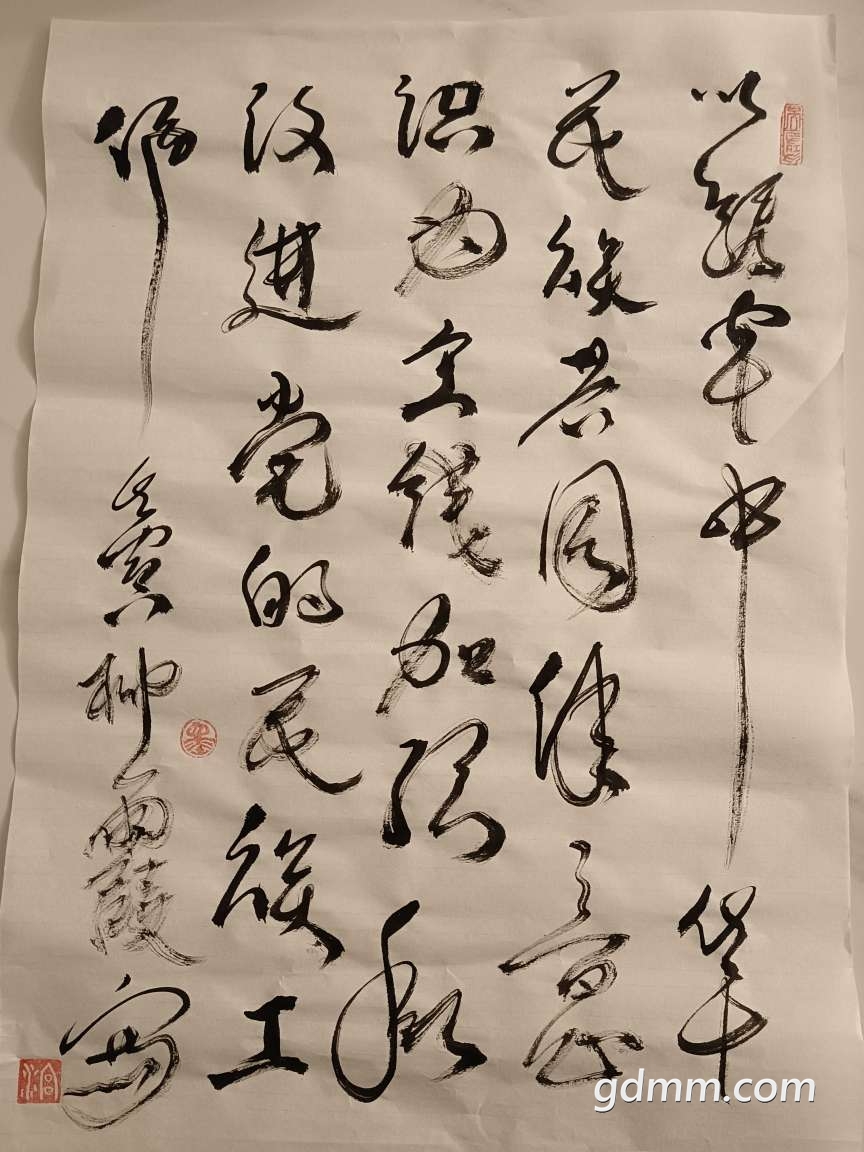 以铸牢中华
民族共同体意
识为主线加强和
改进党的民族工
作
柳霞写
gdmm.com